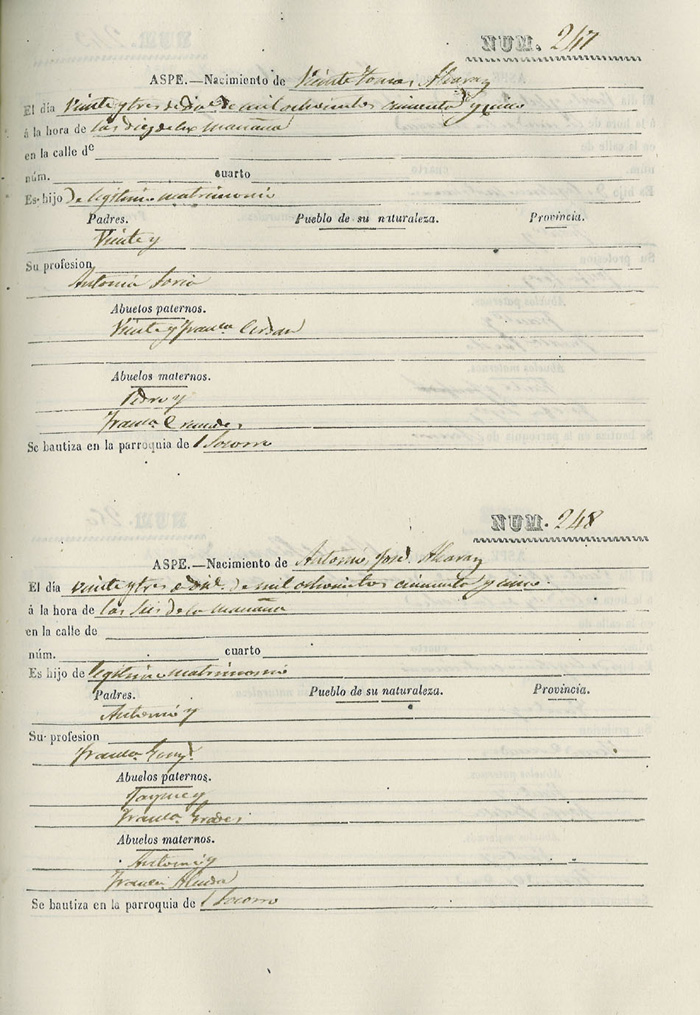 NUM. 247
ASPE.—Nacimiento de Vicente Tomas Alcaraz
El día veinte y tres de Dice de mil ochocientos cincuenta y uno
á la hora de las diez de la mañana
en la calle de
núm. cuarto
Es hijo de legitimo matrimonio
Padres. Pueblo de su naturaleza. Provincia.
Vicente y
Su profesion
Antonia Soria
Abuelos paternos.
Vicente y Franca
Abuelos maternos.
Pedro y
Franca
Se bautiza en la parroquia de l Socorro
NUM. 248
ASPE.—Nacimiento de Antonio José Alcaraz
El día veinte y tres de mil ochocientos cincuenta y uno
á la hora de las seis de la mañana
en la calle de
núm. cuarto
Es hijo de legitimo matrimonio
Padres. Pueblo de su naturaleza. Provincia.
Antonio y
Su profesion
Franca
Abuelos paternos.
Jayme y
Franca
Abuelos maternos.
Antonio y
Se bautiza en la parroquia de l Socorro